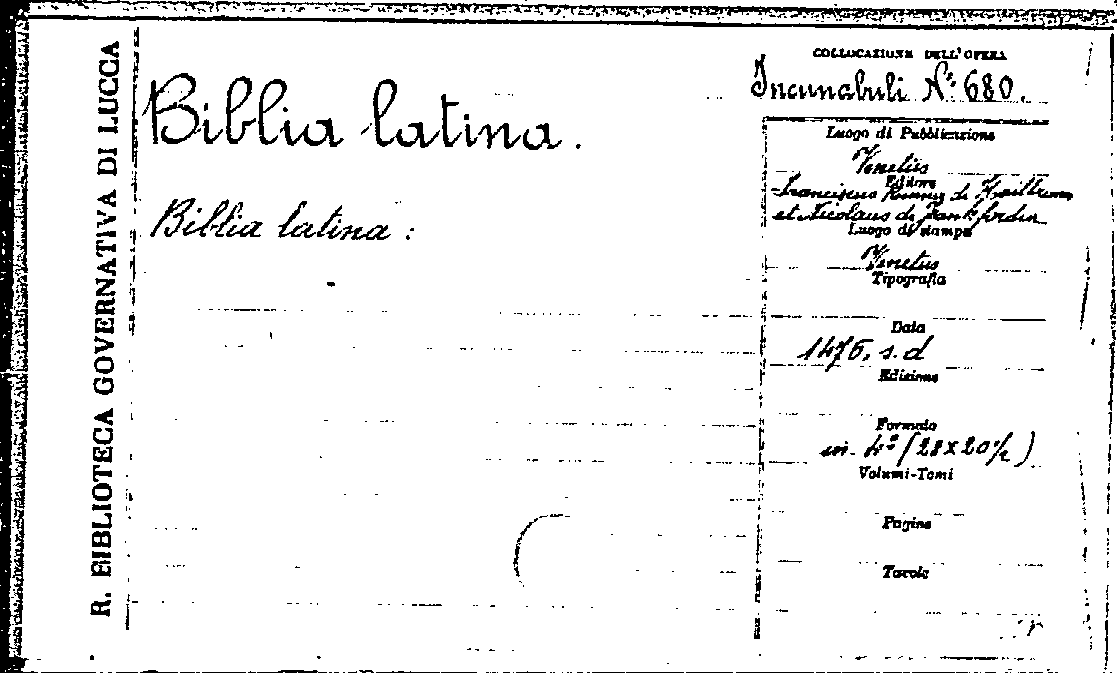 R. BIBLIOTECA GOVERNATIVA DI LUCCA
Biblia latina.
Biblia latina :
COLLOCAZIONE DELL'OPERA
Incunabuli N.º 680.
Luogo di Pubblicazione
Venetiis
Editore
Franciscus de
et Nicolaus de Frankfordia
Luogo di stampa
Venetiis
Tipografia
Data
1476, s. d
Edizione
Formato
in. 4º (28x20½)
Volumi-Tomi
Pagine
Tavole